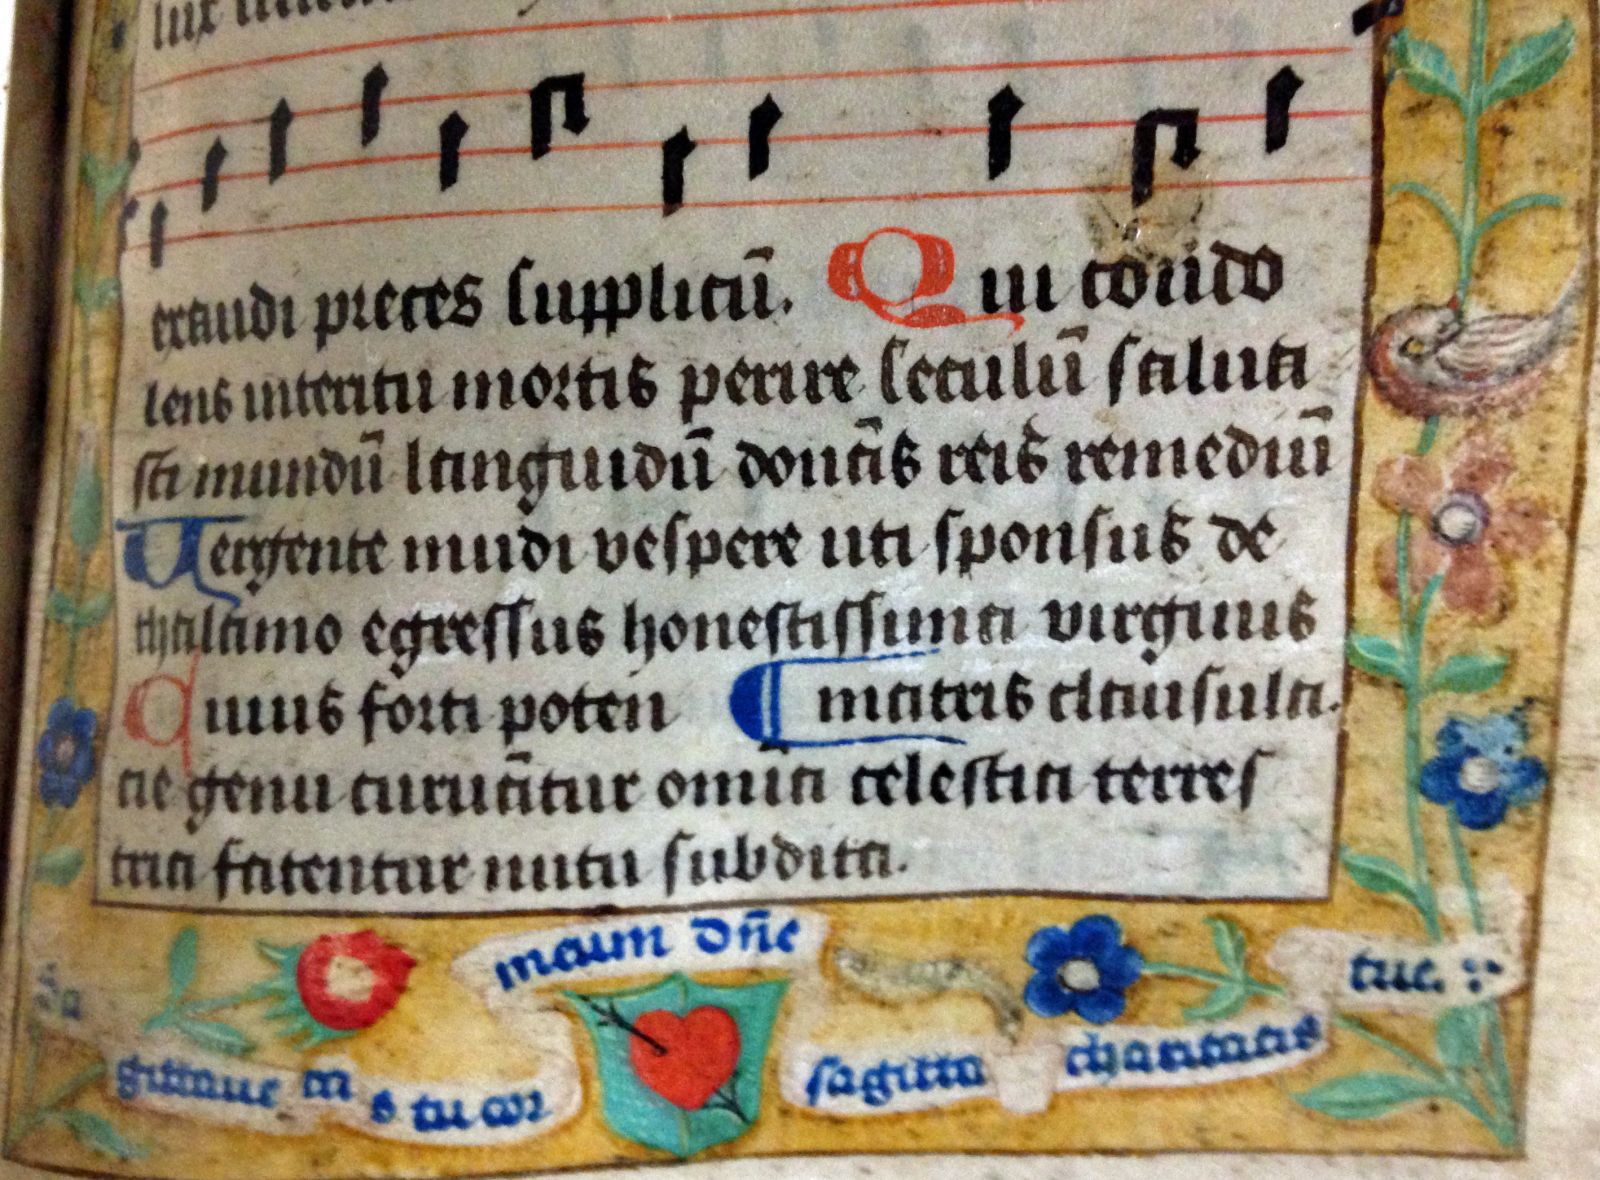 lux
exaudi preces supplicū. Qui condo
lens interitu mortis perire seculū salua
sti mundū languidū donās reis remediū
Uergente mūdi vespere uti sponsus de
thalamo egressus honestissima virginis
Cuius forti poten ¶ matris clausula.
tie genu curuātur omīa celestia terres
tria fatentur nutu subdita.
Sa
gittaue
s tu cor
meum dn̄e
sagitta
charitatis
tue.